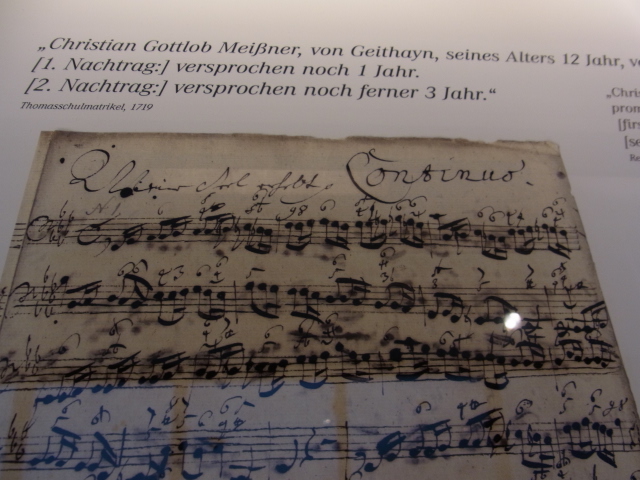 „Christian Gottlob Meißner, von Geithayn, seines Alters 12 Jahr,
[1. Nachtrag:] versprochen noch 1 Jahr.
[2. Nachtrag:] versprochen noch ferner 3 Jahr."
Thomasschulmatrikel, 1719
„Chris
prom
[firs
[se
Re
Continuo.